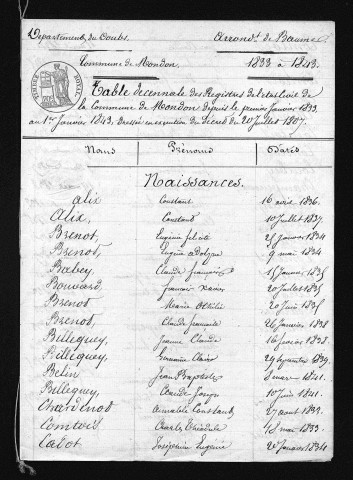 Département du Doubs. Arrondt. de Baume.
Commune de Mondon. 1833 à 1843.
TIMBRE ROYAL
Table décennale des Registres de l'état civil de
la Commune de Mondon depuis le premier Janvier 1833.
au 1er Janvier 1843. Dressée en exécution du Décret du 20 Juillet 1807.
Noms Prénoms Dates
Naissances.
Alix Constant 16 avril 1836.
Alix, Constant 10 Juillet 1837.
Brenot, Eugénie félicité 25 Janvier 1834
Brenot, Eugène adolphe 9 mai 1834
Babey, Claude françois 15 Janvier 1835
Bouvard françois xavier 20 Juillet 1835
Brenot Marie 20 Juin 1835
Brenot, Claude 26 Janvier 1838
Billequey, Jeanne Claude 16 février 1838.
Billequey, Claire 24 Septembre 1839
Belin Jean Baptiste 8 mars 1841.
Billequey, Claude Joseph 10 Juin 1841.
Chardenot Annable Constant 27 août 1839.
Comtois Charle Théodule 18 mai 1833.
Cabot Joséphine Eugénie 20 Janvier 1834